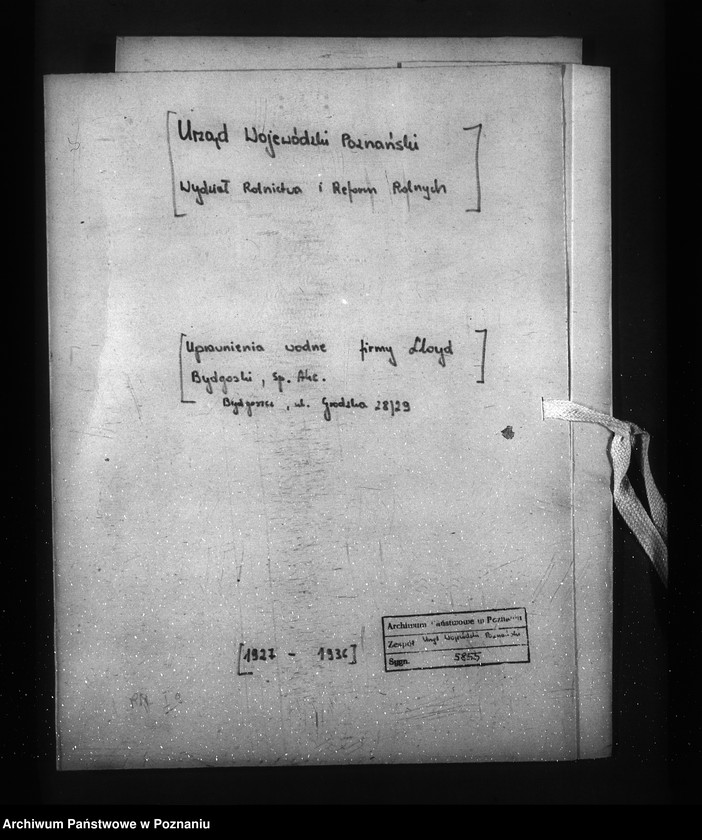 [Urząd Wojewódzki Poznański
Wydział Rolnictwa i Reform Rolnych]
[Uprawnienia wodne firmy Lloyd
Bydgoski, Sp. Akc.
Bydgoszcz, ul. Grodzka 28/29]
[1927 - 1936]
Archiwum Państwowe w Poznaniu
Zespół Urząd Wojewódzki Poznański
Sygn. 5855
Archiwum Państwowe w Poznaniu